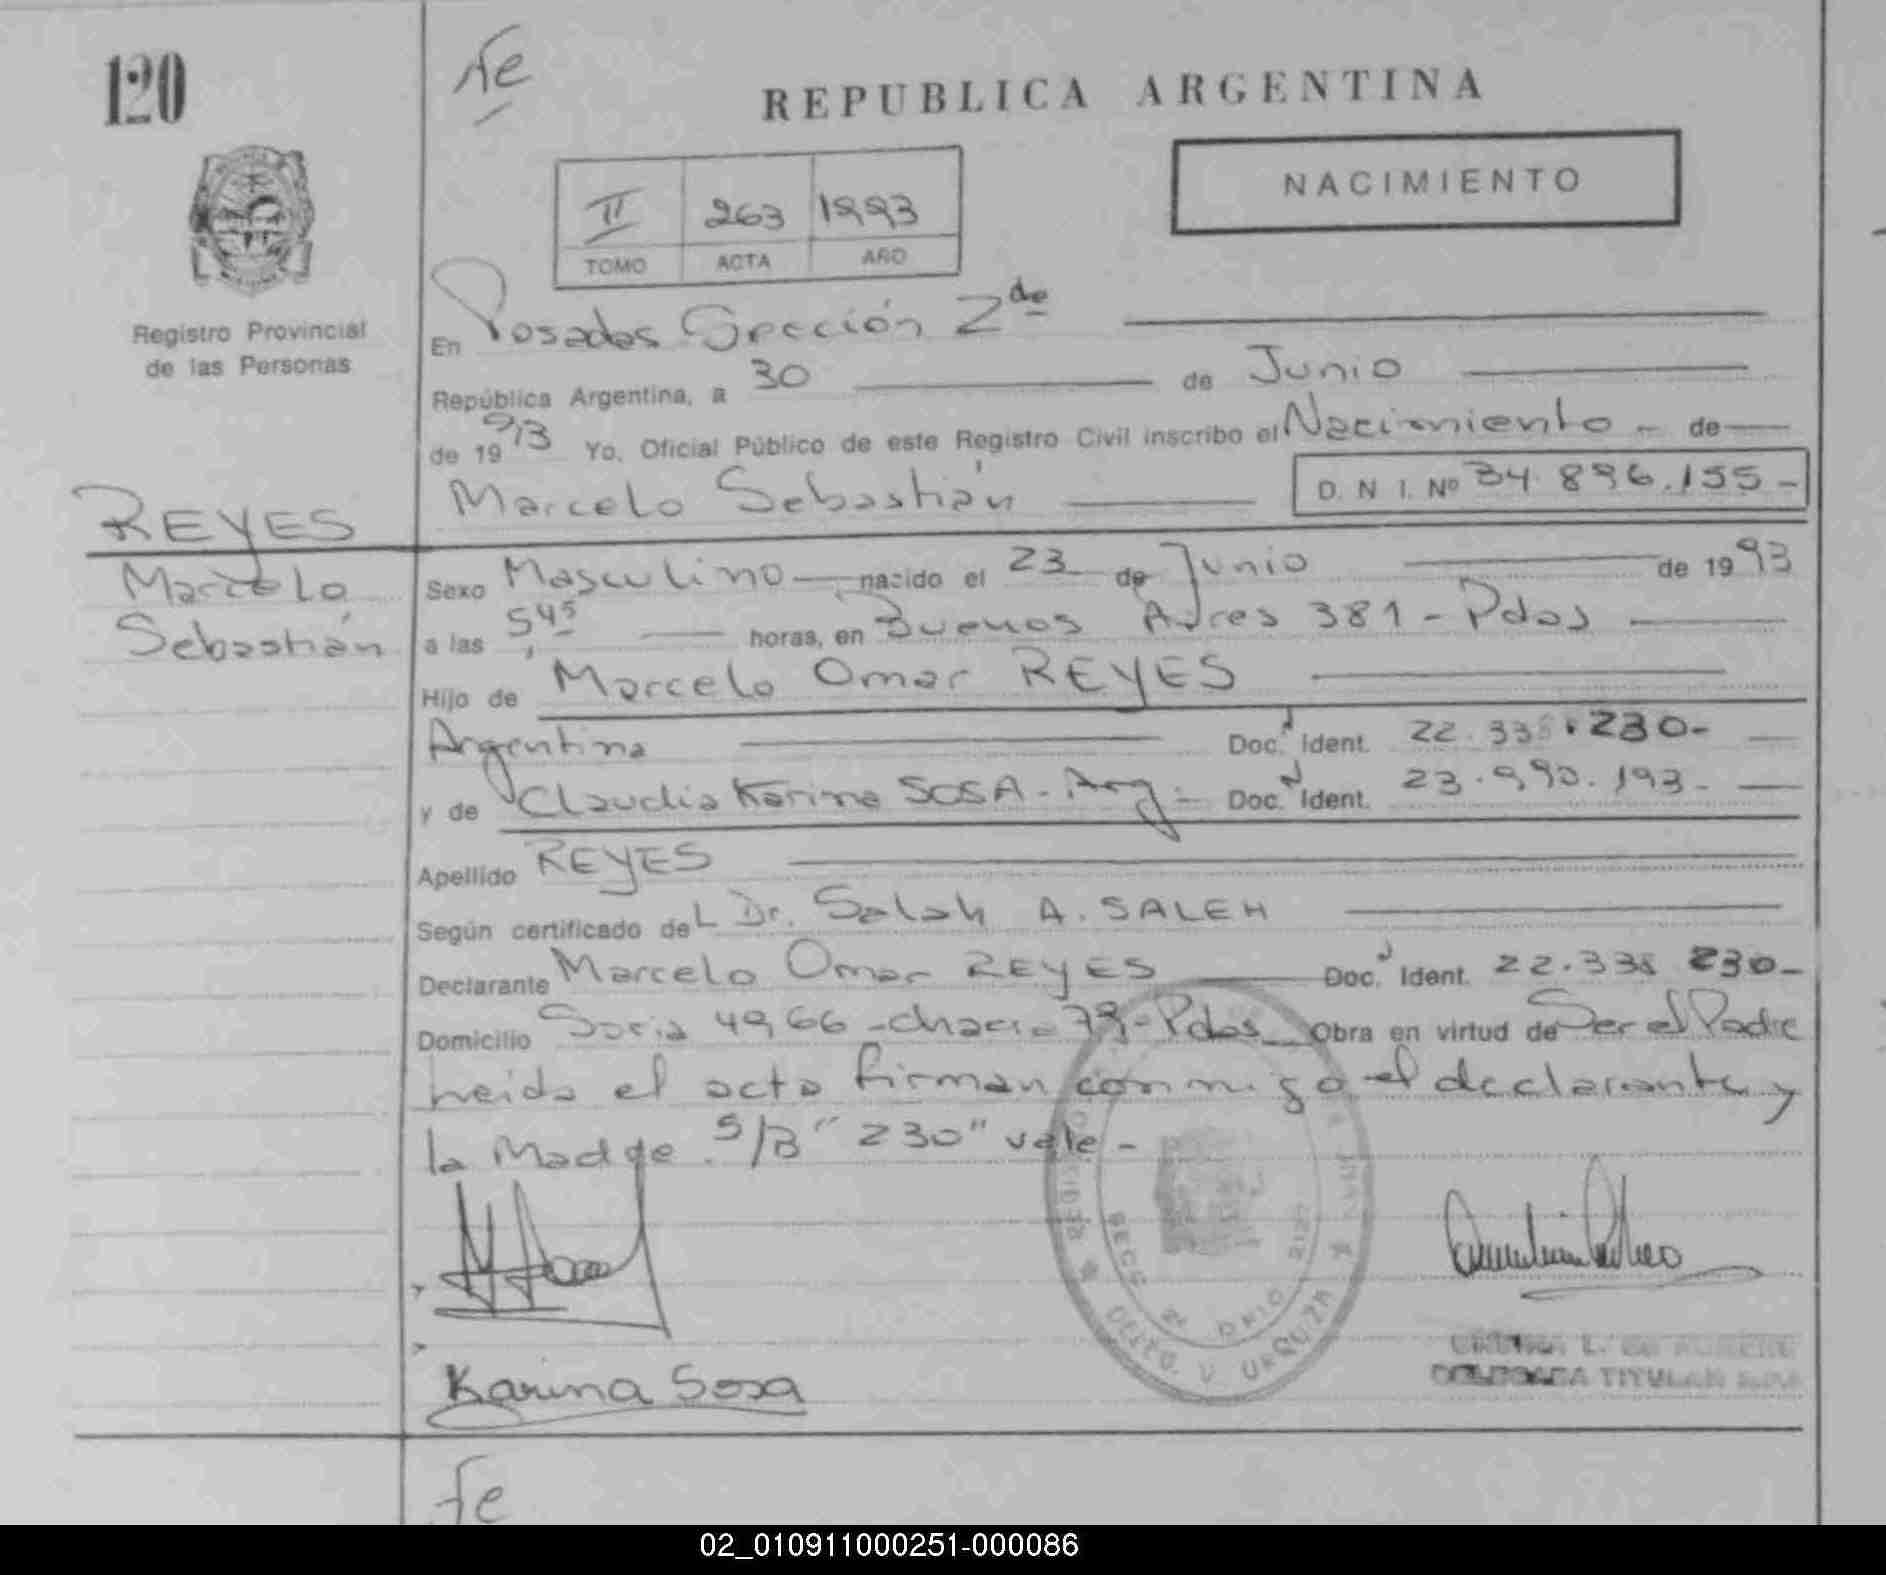 120
fe
REPUBLICA ARGENTINA
NACIMIENTO
II 263 1993
TOMO ACTA AÑO
Registro Provincial
de las Personas
En Posadas Sección 2da
República Argentina, a 30 de Junio
de 1993 Yo, Oficial Público de este Registro Civil inscribo el Nacimiento - de
Marcelo Sebastián D. N. I. Nº 34.896.155-
REYES
Marcelo
Sebastián
Sexo Masculino nacido el 23 de Junio de 1993
a las 5,45 horas, en Buenos Aires 381 - Pdas
Hijo de Marcelo Omar REYES
Argentina Doc. Ident. 22.335.230-
y de Claudia Karina SOSA - Arg. Doc. Ident. 23.990.193-
Apellido REYES
Según certificado del Dr. Salah A. SALEH
Declarante Marcelo Omar REYES Doc. Ident. 22.335 230-
Domicilio Soria 4966 - chacra 79 - Pdas Obra en virtud de Ser el Padre
heida el acta firman conmigo el declarante y
la Madre. S/B "230" vale -
Karina Sosa
SECC 2
DPTO. V URQUIZA
TITULAR
fe
02_010911000251-000086